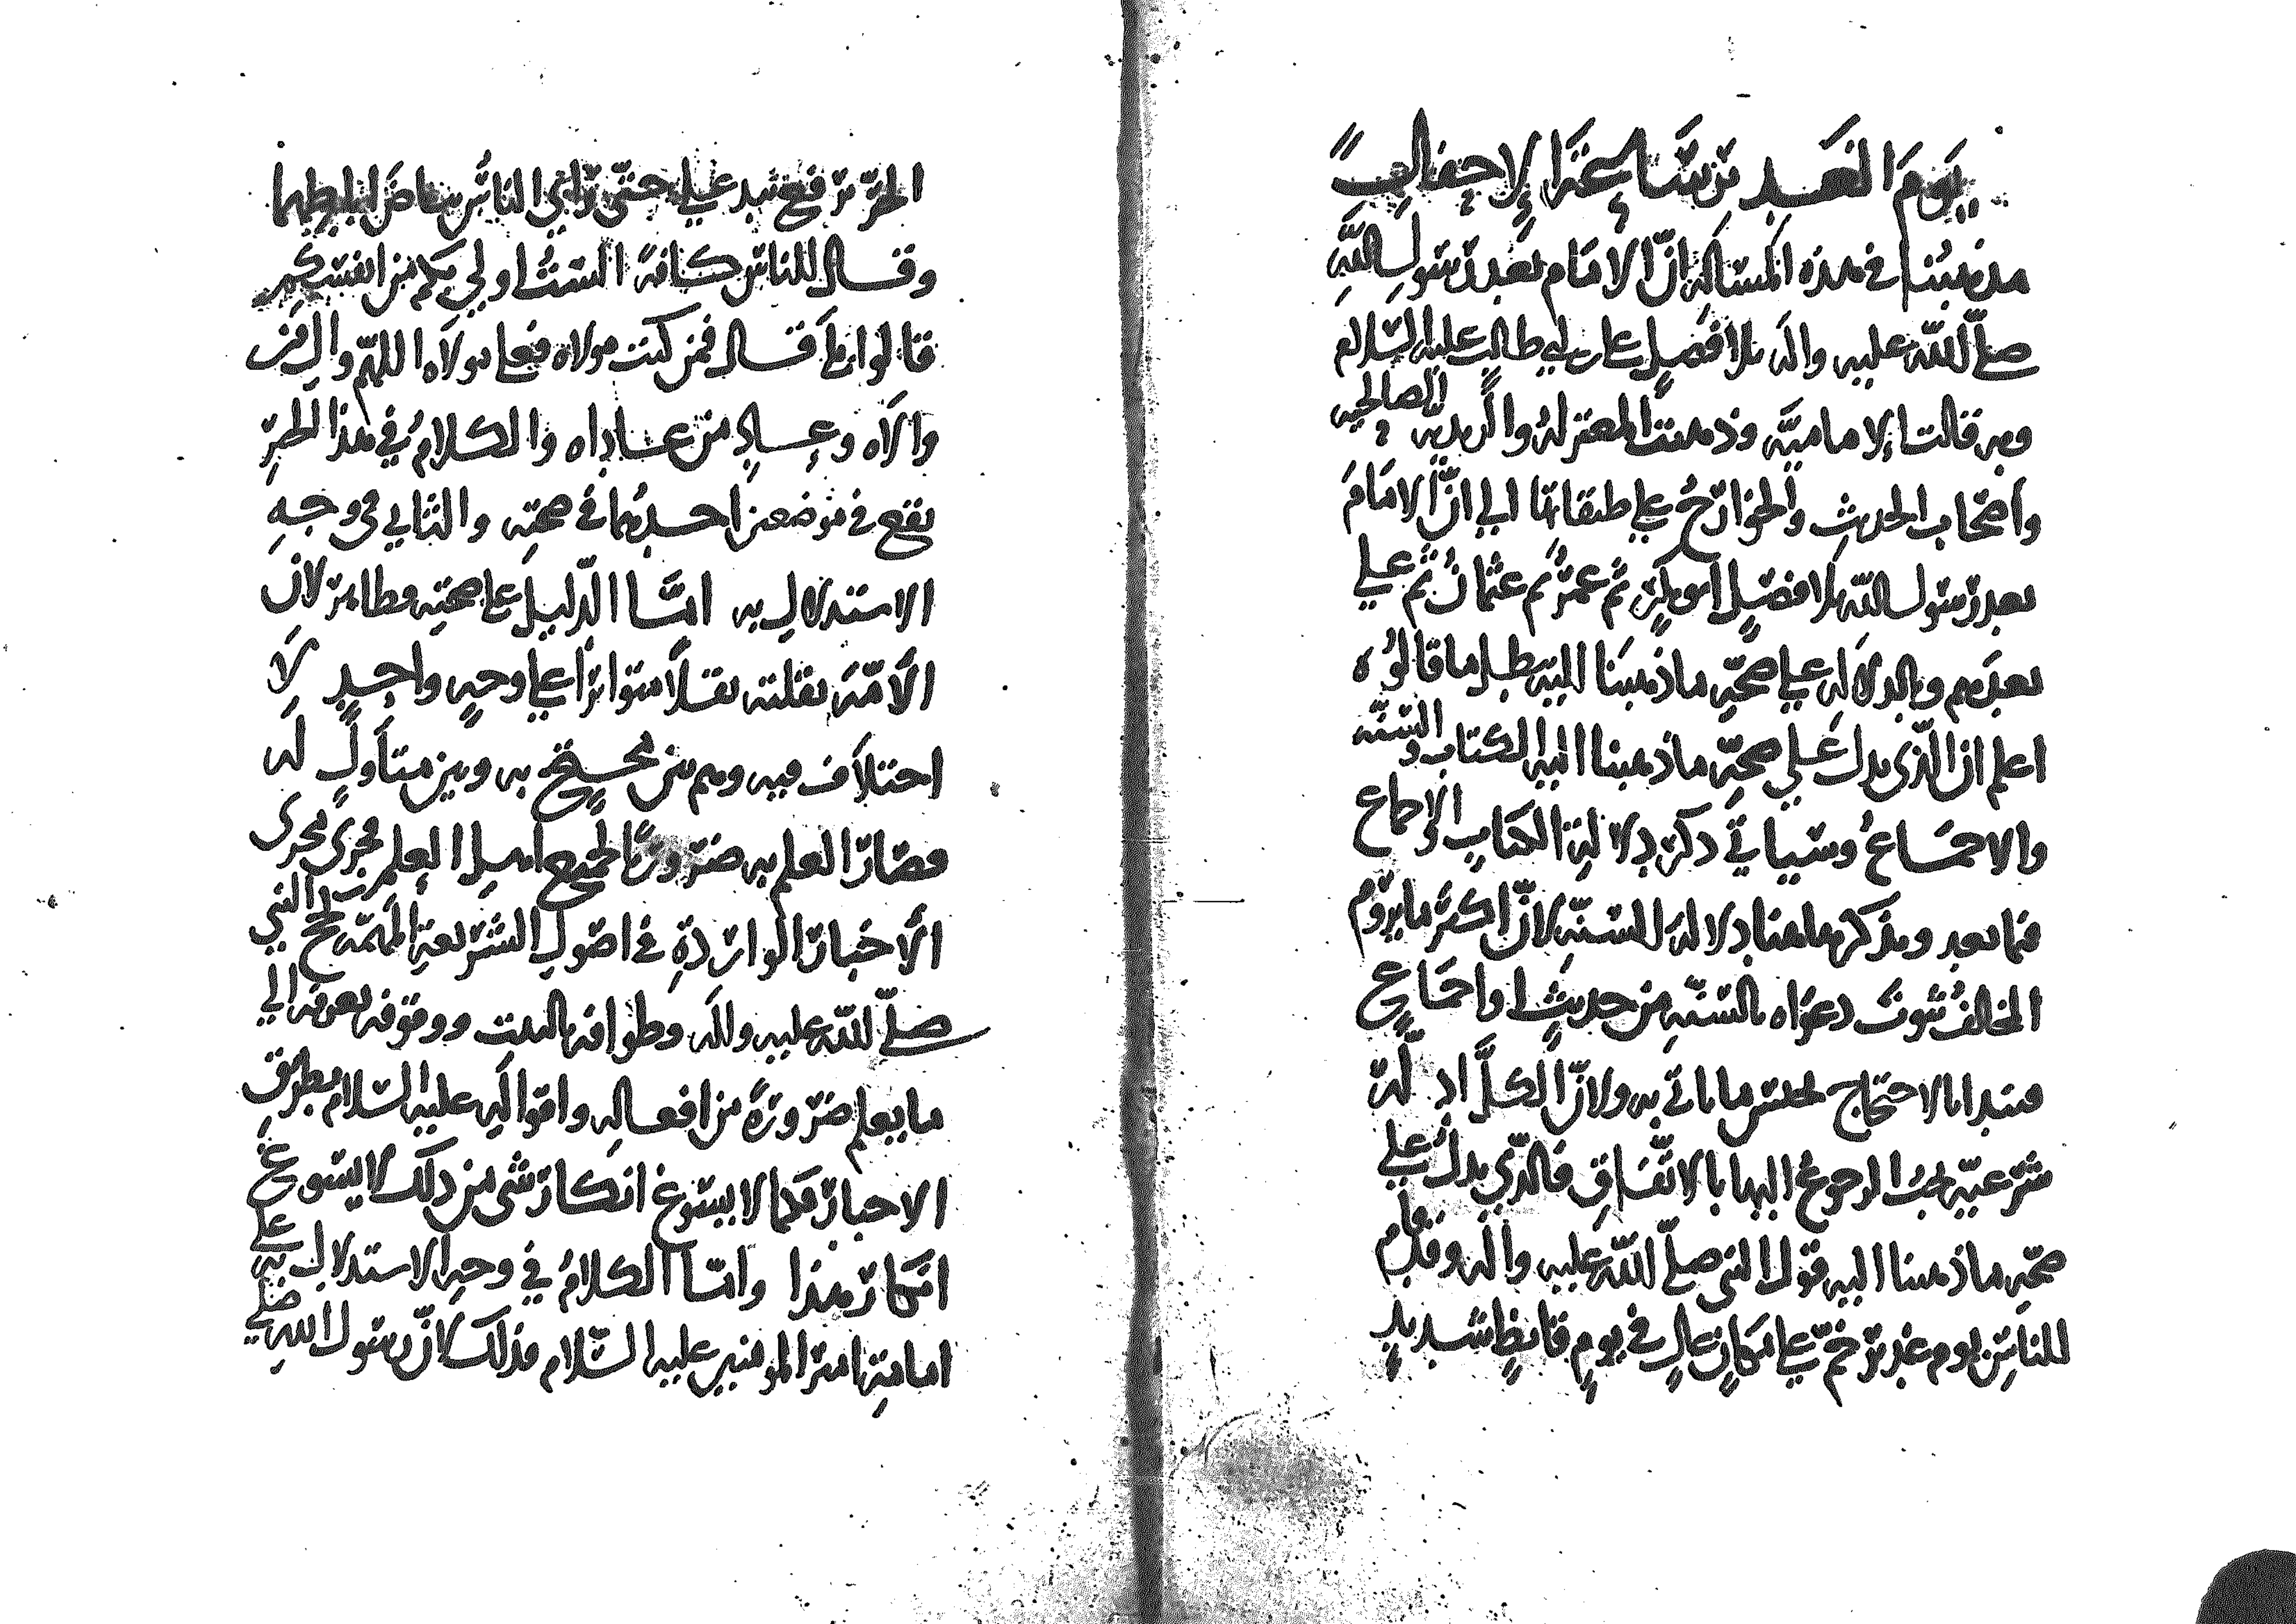 يوم الغدير
مذهبنا في هذه المسألة ان الامام بعد رسول الله
صلى الله عليه واله بلا فصل علي بن ابي طالب عليه السلام
وبه قالت الامامية وذهبت المعتزلة والزيدية الصالحية
واصحاب الحديث والخوارج على طبقاتها الى ان الامام
بعد رسول الله بلا فصل ابو بكر ثم عمر ثم عثمان ثم علي
بعدهم وبالدلالة على صحة ما ذهبنا اليه يبطل ما قالوه
اعلم ان الذي يدل على صحة ما ذهبنا اليه الكتاب والسنة
والاجماع وسياتي ذكر دلالة الكتاب والاجماع
فيما بعد ونذكر هاهنا دلالة السنة لان اكثر ما يروم
المخالف ثبوت دعواه بالسنة من حديث او اجماع
فنبدا بالاحتجاج بجنس ما ياتي به ولان الكل ادلة
شرعية يجب الرجوع اليها بالاتفاق فالذي يدل على
صحة ما ذهبنا اليه قول النبي صلى الله عليه واله وقد قام
للناس يوم غدير خم على مكان عال في يوم قائظ شديد
الحر فرفع يد علي حتى راى الناس بياض ابطيهما
وقال للناس كافة الست اولى بكم من انفسكم
قالوا بلى قال فمن كنت مولاه فعلي مولاه اللهم وال من
والاه وعاد من عاداه والكلام في هذا الخبر
يقع في موضعين احدهما في صحته والثاني في وجه
الاستدلال به اما الدليل على صحته فظاهر لان
الامة نقلته نقلا متواترا على وجه واحد لا
اختلاف فيه وهم من محتج به وبين متاول له
فصار العلم به ضرورة لجميع اهل العلم مجرى
الاخبار الواردة في اصول الشريعة المهمة كحج النبي
صلى الله عليه واله وطوافه بالبيت ووقوفه بعرفة الى
ما يعلم ضرورة من افعاله واقواله عليه السلام بطريق
الاخبار فكما لا يسوغ انكار شى من ذلك لا يسوغ
انكار هذا واما الكلام في وجه الاستدلال به على
امامة امير المومنين عليه السلام فذلك لان رسول الله صلى